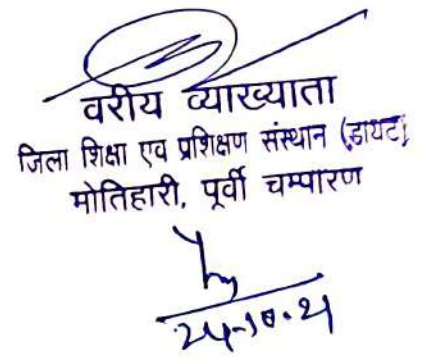 वरीय व्याख्याता
जिला शिक्षा एव प्रशिक्षण संस्थान (डायट)
मोतिहारी, पूर्वी चम्पारण